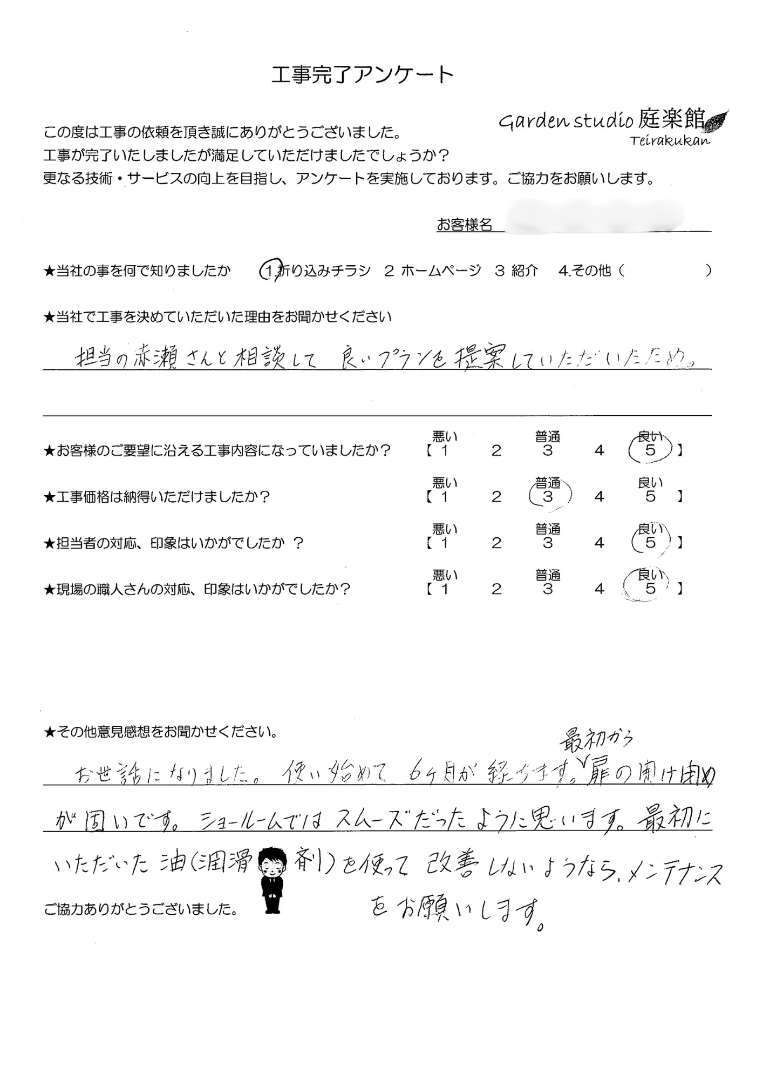 工事完了アンケート
Garden studio 庭楽館
Teirakukan
この度は工事の依頼を頂き誠にありがとうございました。
工事が完了いたしましたが満足していただけましたでしょうか？
更なる技術・サービスの向上を目指し、アンケートを実施しております。ご協力をお願いします。
お客様名
★当社の事を何で知りましたか 1.折り込みチラシ 2 ホームページ 3 紹介 4.その他（ ）
★当社で工事を決めていただいた理由をお聞かせください
担当の赤瀬さんと相談して 良いプランを提案していただいたため。
悪い 普通 良い
★お客様のご要望に沿える工事内容になっていましたか？ 【 1 2 3 4 5 】
悪い 普通 良い
★工事価格は納得いただけましたか？ 【 1 2 3 4 5 】
悪い 普通 良い
★担当者の対応、印象はいかがでしたか ？ 【 1 2 3 4 5 】
悪い 普通 良い
★現場の職人さんの対応、印象はいかがでしたか？ 【 1 2 3 4 5 】
★その他意見感想をお聞かせください。
最初から
お世話になりました。 使い始めて 6ヶ月が経ちます。扉の開け閉め
が固いです。ショールームではスムーズだったように思います。最初に
いただいた油(潤滑剤)を使って 改善しないようなら、メンテナンス
をお願いします。
ご協力ありがとうございました。